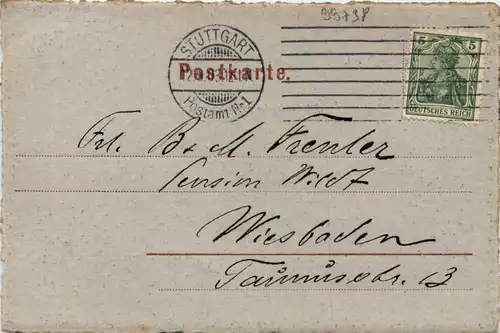 99738
STUTTGART
Postkarte.
Postamt Nr. 1
5 5
DEUTSCHES REICH
Frl. B. & M.
Pension Wildt
Wiesbaden
Taunusstr. 13